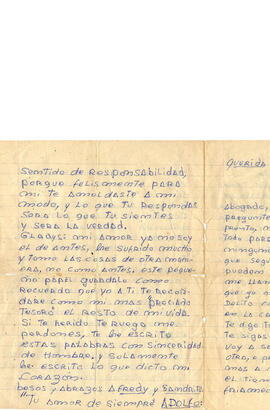 Sentido de Responsabilidad,
porque felismente para
mi te amoldaste a mi
modo, y lo que tu Respondas
sera lo que tu sientes
y sera la verdad.
Gladys: mi amor ya no soy
el de antes, he sufrido mucho
y tomo las cosas de otra man-
era, no como antes, este peque-
ño papel guardalo como
recuerdo que yo a ti te recor-
dare como mi mas preciado
tesoro el resto de mi vida.
Si te herido te ruego me
perdones, te he escrito
estas palabras con sinceridad
de hombre, y solamente
he escrito lo que dicto mi
corazon.
besos y abrazos a Fredy y Sandrita
"Tu amor de siempre ADOLFO:
Querida
Abogado,
pregunte
pronto, m
todo para
ningun
que segu
pueden
me llam
que yo
Delito c
en la ca
te digo t
te sigas
voy a s
otra, e p
mas a
el tiem